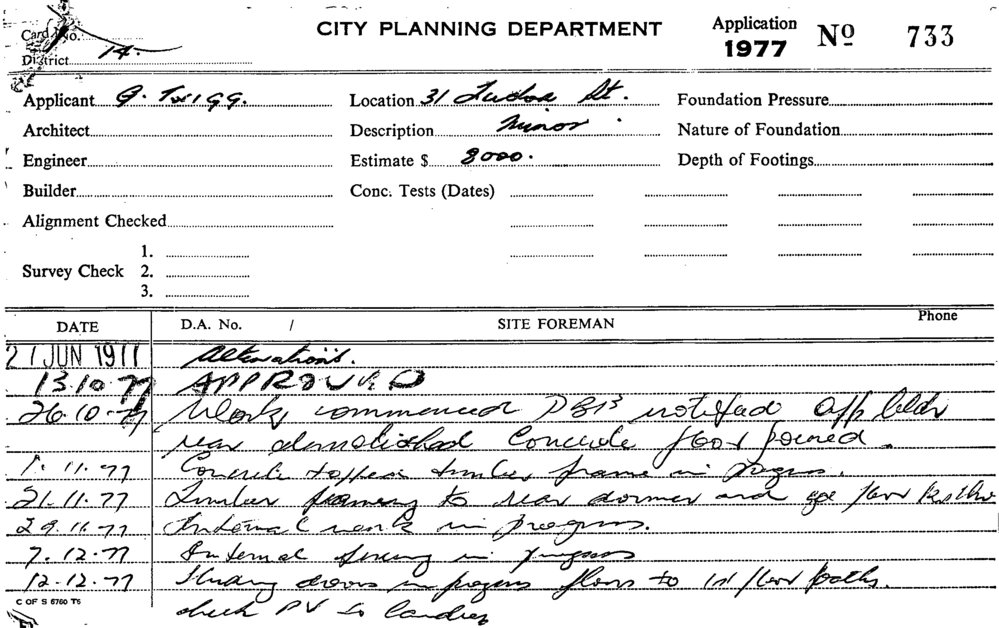 CITY PLANNING DEPARTMENT
Application
1977
Nº 733
Card No.
District 14.
Applicant G. Twigg.
Location 31 Tudor St.
Foundation Pressure
Architect
Description Minor
Nature of Foundation
Engineer
Estimate $ 8000.
Depth of Footings
Builder
Conc. Tests (Dates)
Alignment Checked
1.
Survey Check 2.
3.
DATE D.A. No. / SITE FOREMAN Phone
21 JUN 1977 Alterations.
13.10.77 APPROVED
26.10.77 Work commenced notified
rear demolished Concrete floor poured.
1.11.77 Concrete timber frame in progress.
21.11.77 Timber framing to rear dormer and floor
29.11.77 Internal work in progress.
7.12.77 Internal in progress
12.12.77 doors in progress floors to 1st floor
check PV to
C OF S 6760 T5